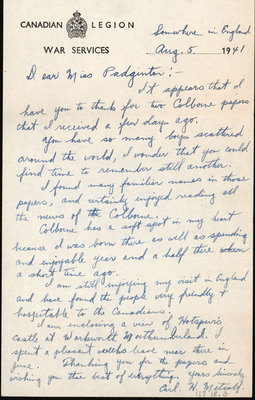 CANADIAN LEGION
WAR SERVICES
Somewhere in England
Aug. 5 1941
Dear Miss Padginton:-
It appears that I
have you to thank for two Colborne papers
that I received a few days ago.
You have so many boys scattered
around the world, I wonder that you could
find time to remember still another.
I found many familiar names in those
papers, and certainly enjoyed reading all
the news of the Colborne.
Colborne has a soft spot in my heart
because I was born there as well as spending
and enjoyable years and a half there when
a short time ago.
I am still enjoying my visit in England
and have found the people very friendly &
hospitable to the Canadians.
I am enclosing a view of Hotspur's
Castle at Warkworth Northumberland. I
spent a pleasant weeks leave near there in
June. Thanking you for the papers and
wishing you the best of everything. Yours sincerely
Carl. H. Metcalf.